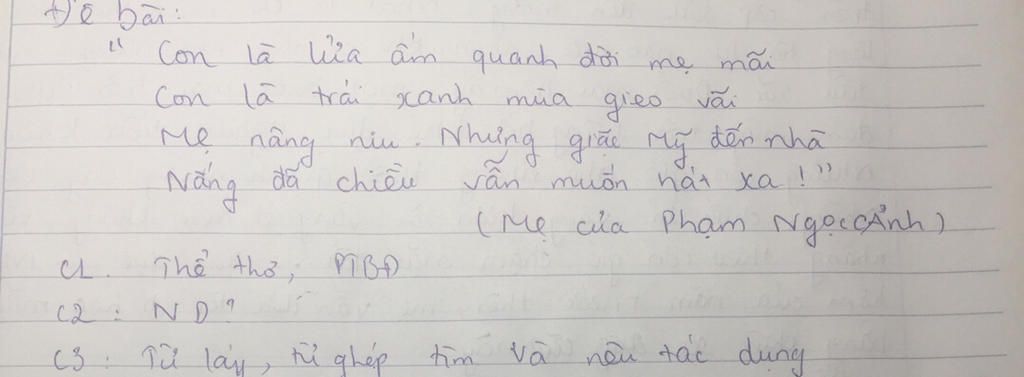 Đề bài:
" Con là lửa ấm quanh đời mẹ mãi
Con là trái xanh mùa gieo vãi
Mẹ nâng niu. Nhưng giặc Mỹ đến nhà
Nắng đã chiều vẫn muốn hát xa!"
(Mẹ của Phạm Ngọc Cảnh)
C1. Thể thơ, PTBĐ
C2: ND?
C3: Từ láy, từ ghép tìm và nêu tác dụng